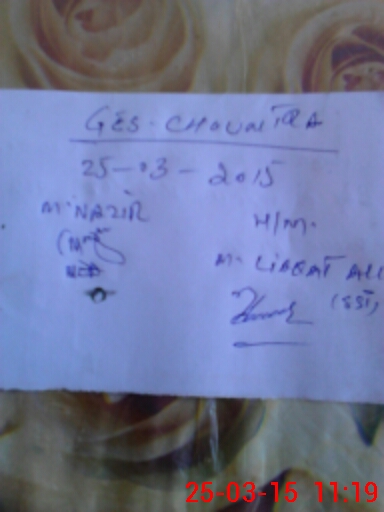 GES. CHOUNTRA
25-03-2015
M. NAZIR
H/M.
M. LIAQAT ALI
(SST)
25-03-15 11:19